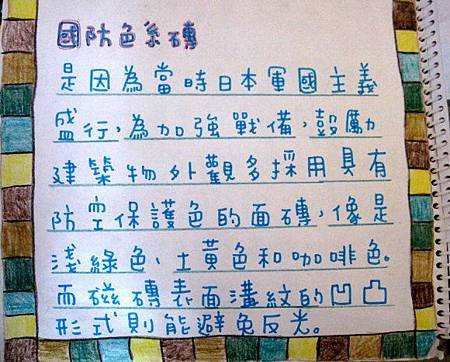 國防色系磚
是因為當時日本軍國主義
盛行,為加強戰備,鼓勵
建築物外觀多採用具有
防空保護色的面磚,像是
淺綠色、土黃色和咖啡色。
而磁磚表面溝紋的凹凸
形式則能避免反光。